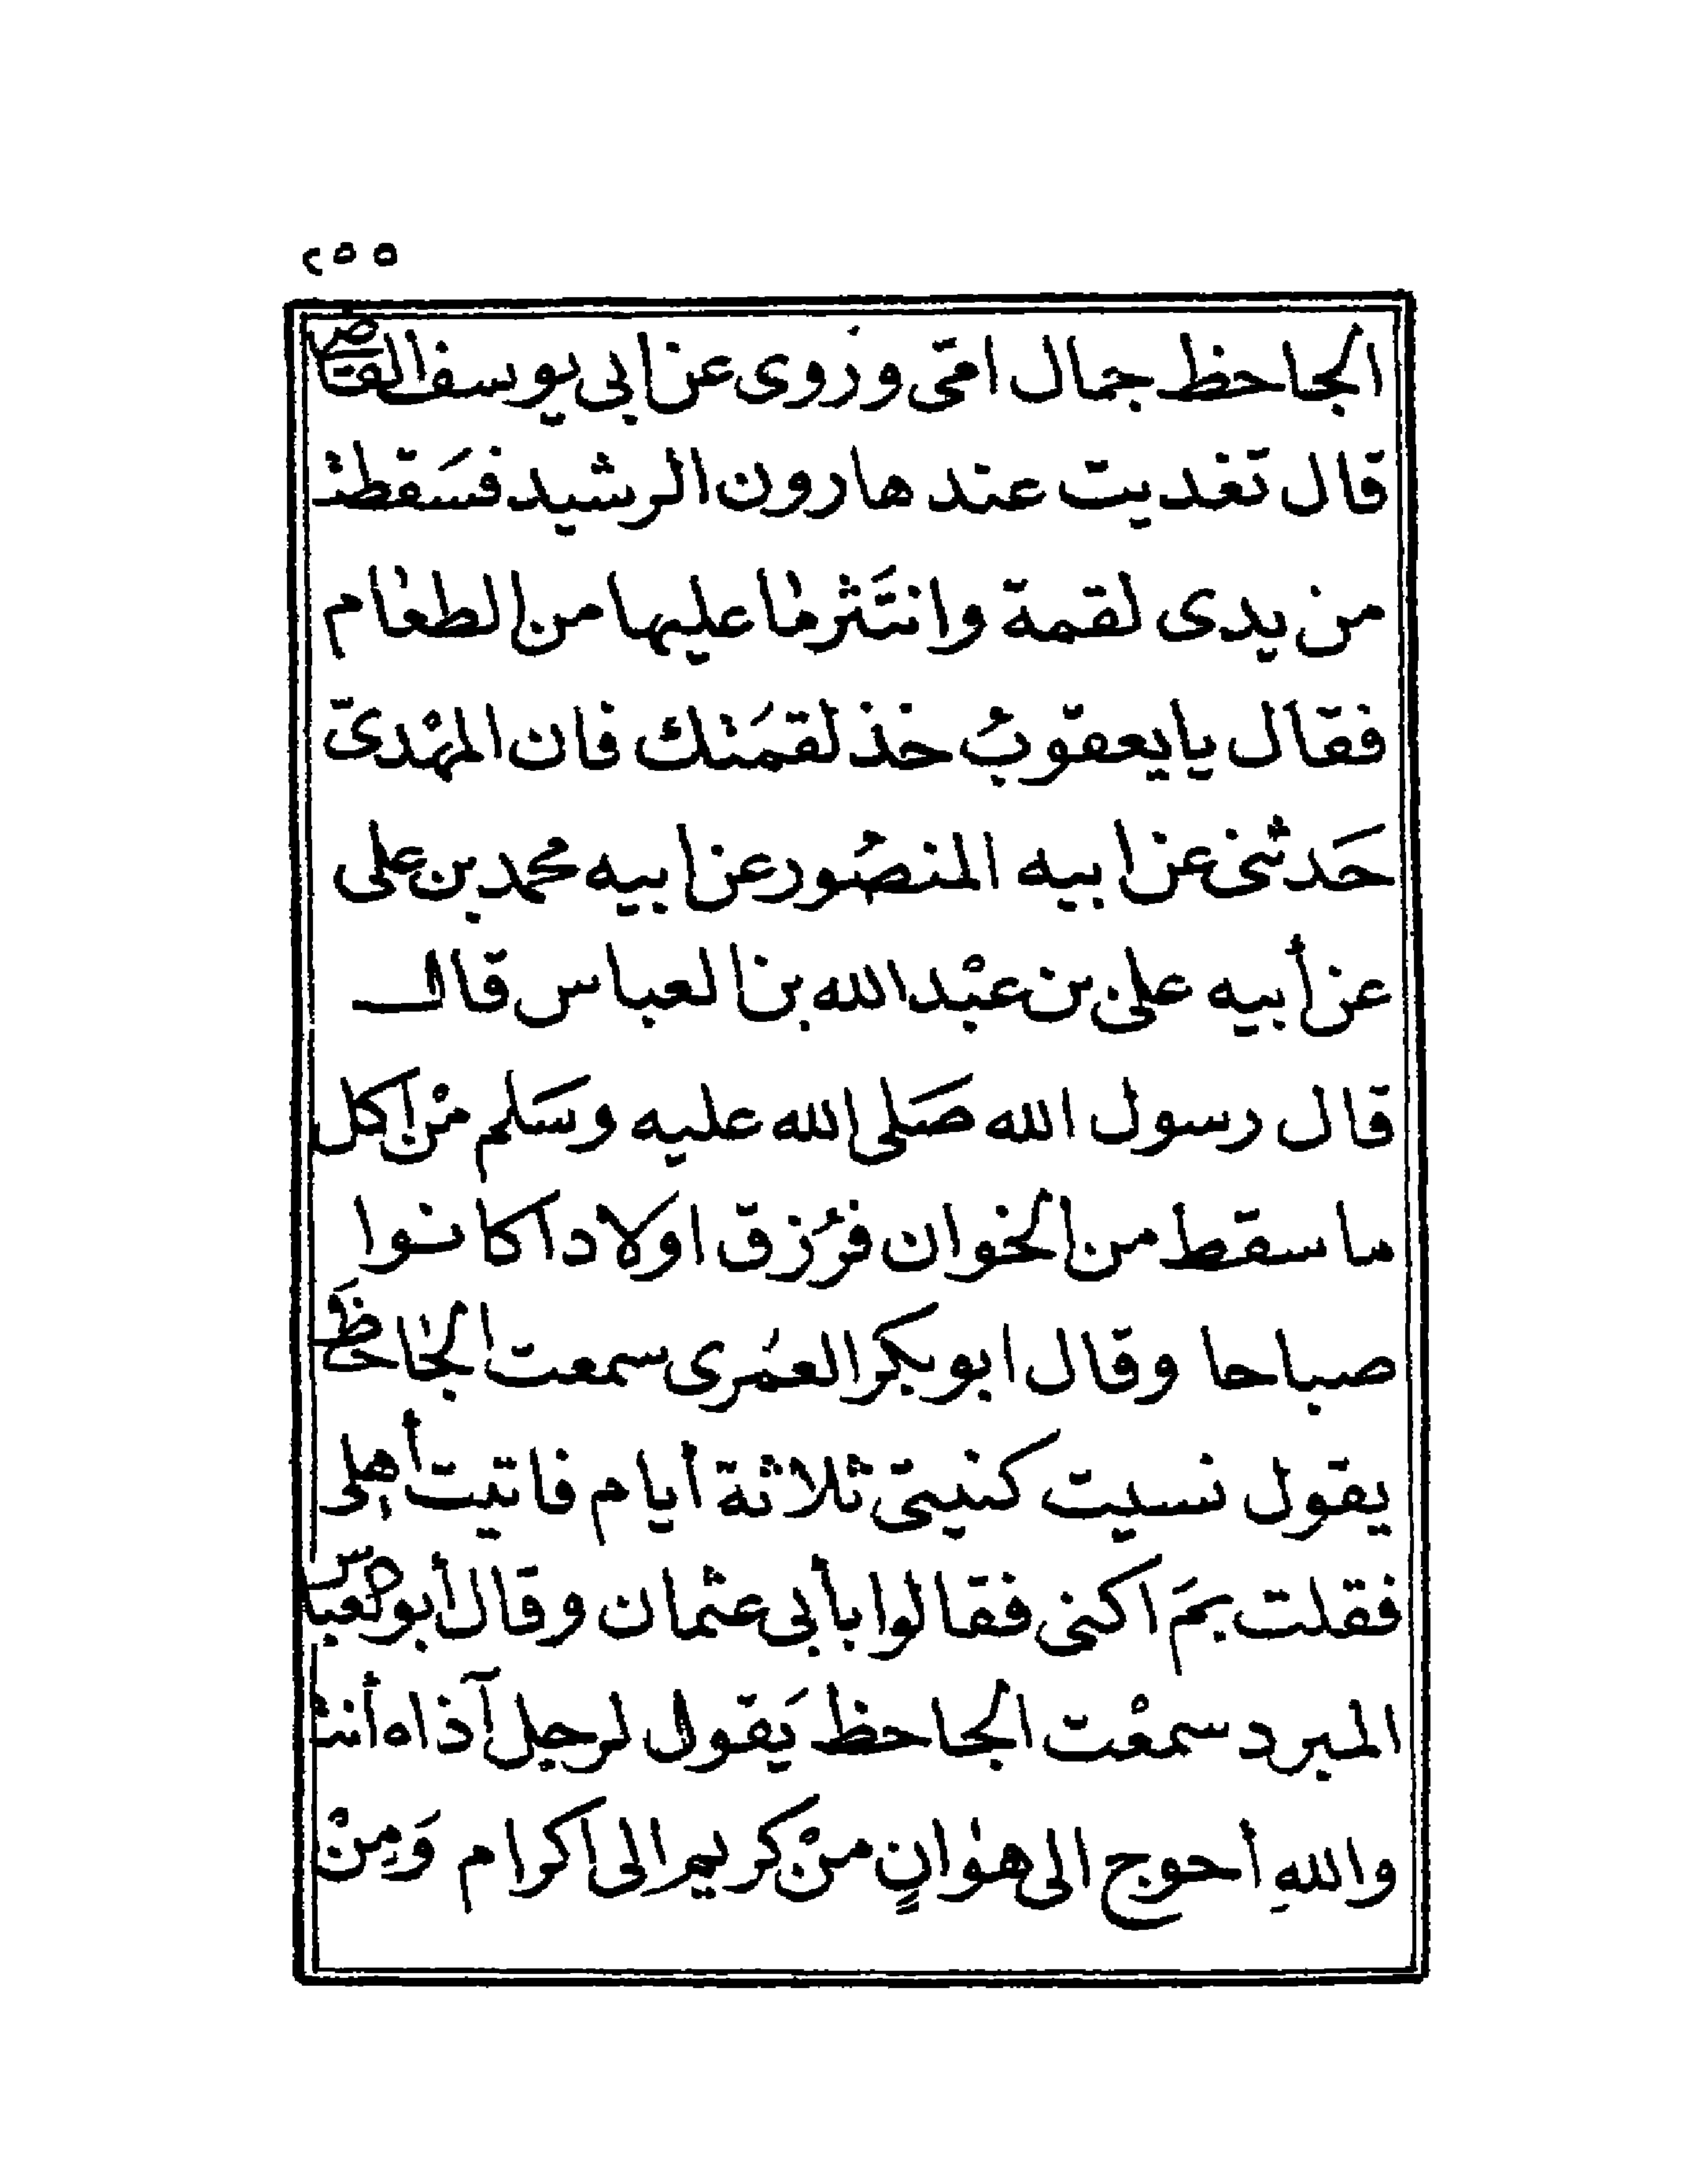 ٢٥٥
الجاحظ جمال امّى وروى عن ابى يوسف القاضى
قال تغديت عند هارون الرشيد فسَقطت
من يدى لقمة وانتَثر ما عليها من الطعام
فقال يا يعقوبُ خذ لقمَتك فان المهْدىّ
حَدثنى عن ابيه المنصُور عن ابيه محمد بن على
عن أبيه على بن عبْد الله بن العباس قال
قال رسول الله صَلى الله عليه وسَلم منْ اكل
ما سقط من الخوان فرُزق اولادا كانوا
صباحا وقال ابو بكر العمَرى سمعت الجاحظَ
يقول نسيت كنيتى ثلاثة أيام فاتيت أهلى
فقلت بمَ اكنى فقالوا بأبى عثمان وقال أبو العباس
المبرد سمعْت الجاحظ يَقول لرجل آذاه أنت
واللهِ أحوج الى هوانٍ منْ كريم الى اكرام وَمِنْ